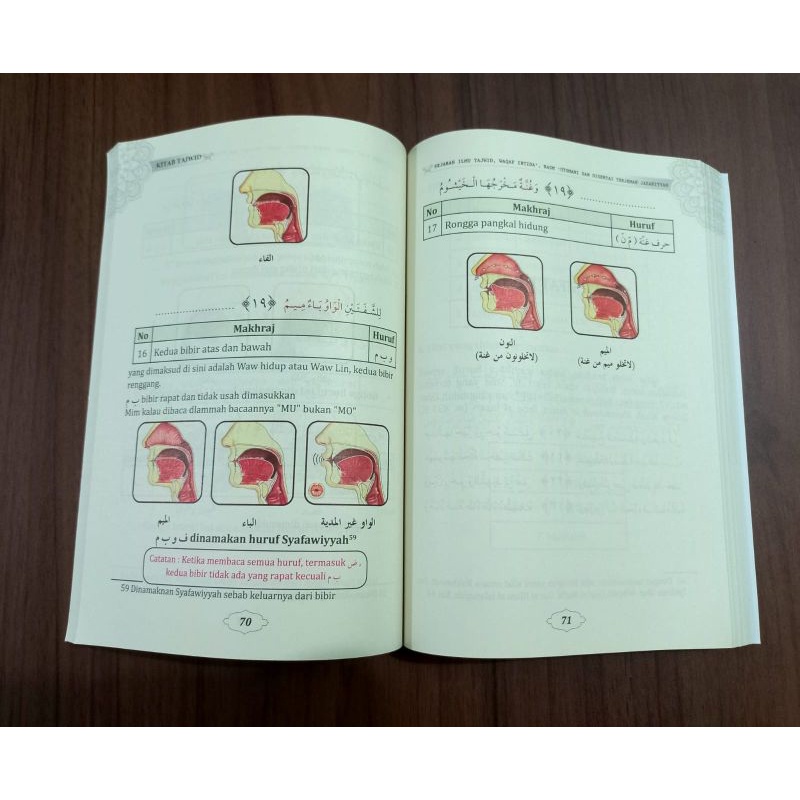 KITAB TAJWID
الفاء
لِلشَّفَتَيْنِ الْوَاوُ بَاءٌ مِيمُ ﴿١٩﴾ ........................
No Makhraj Huruf
16 Kedua bibir atas dan bawah و ب م
yang dimaksud di sini adalah Waw hidup atau Waw Lin, kedua bibir
renggang.
ب م bibir rapat dan tidak usah dimasukkan
Mim kalau dibaca dlammah bacaannya "MU" bukan "MO"
الميم الباء الواو غير المدية
ف و ب م dinamakan huruf Syafawiyyah⁵⁹
Catatan : Ketika membaca semua huruf, termasuk ص
kedua bibir tidak ada yang rapat kecuali ب م
59 Dinamaknan Syafawiyyah sebab keluarnya dari bibir
70
SEJARAH ILMU TAJWID, WAQAF IBTIDA', RASM 'UTSMANI DAN DISERTAI TERJEMAH JAZARIYYAH
........................ ﴿١٩﴾ وَغُنَّةٌ مَخْرَجُهَا الْخَيْشُومُ
No Makhraj Huruf
17 Rongga pangkal hidung حرف غنة (مّ نّ)
النون الميم
(لاتخلونون من غنة) (لاتخلو ميم من غنة)
71